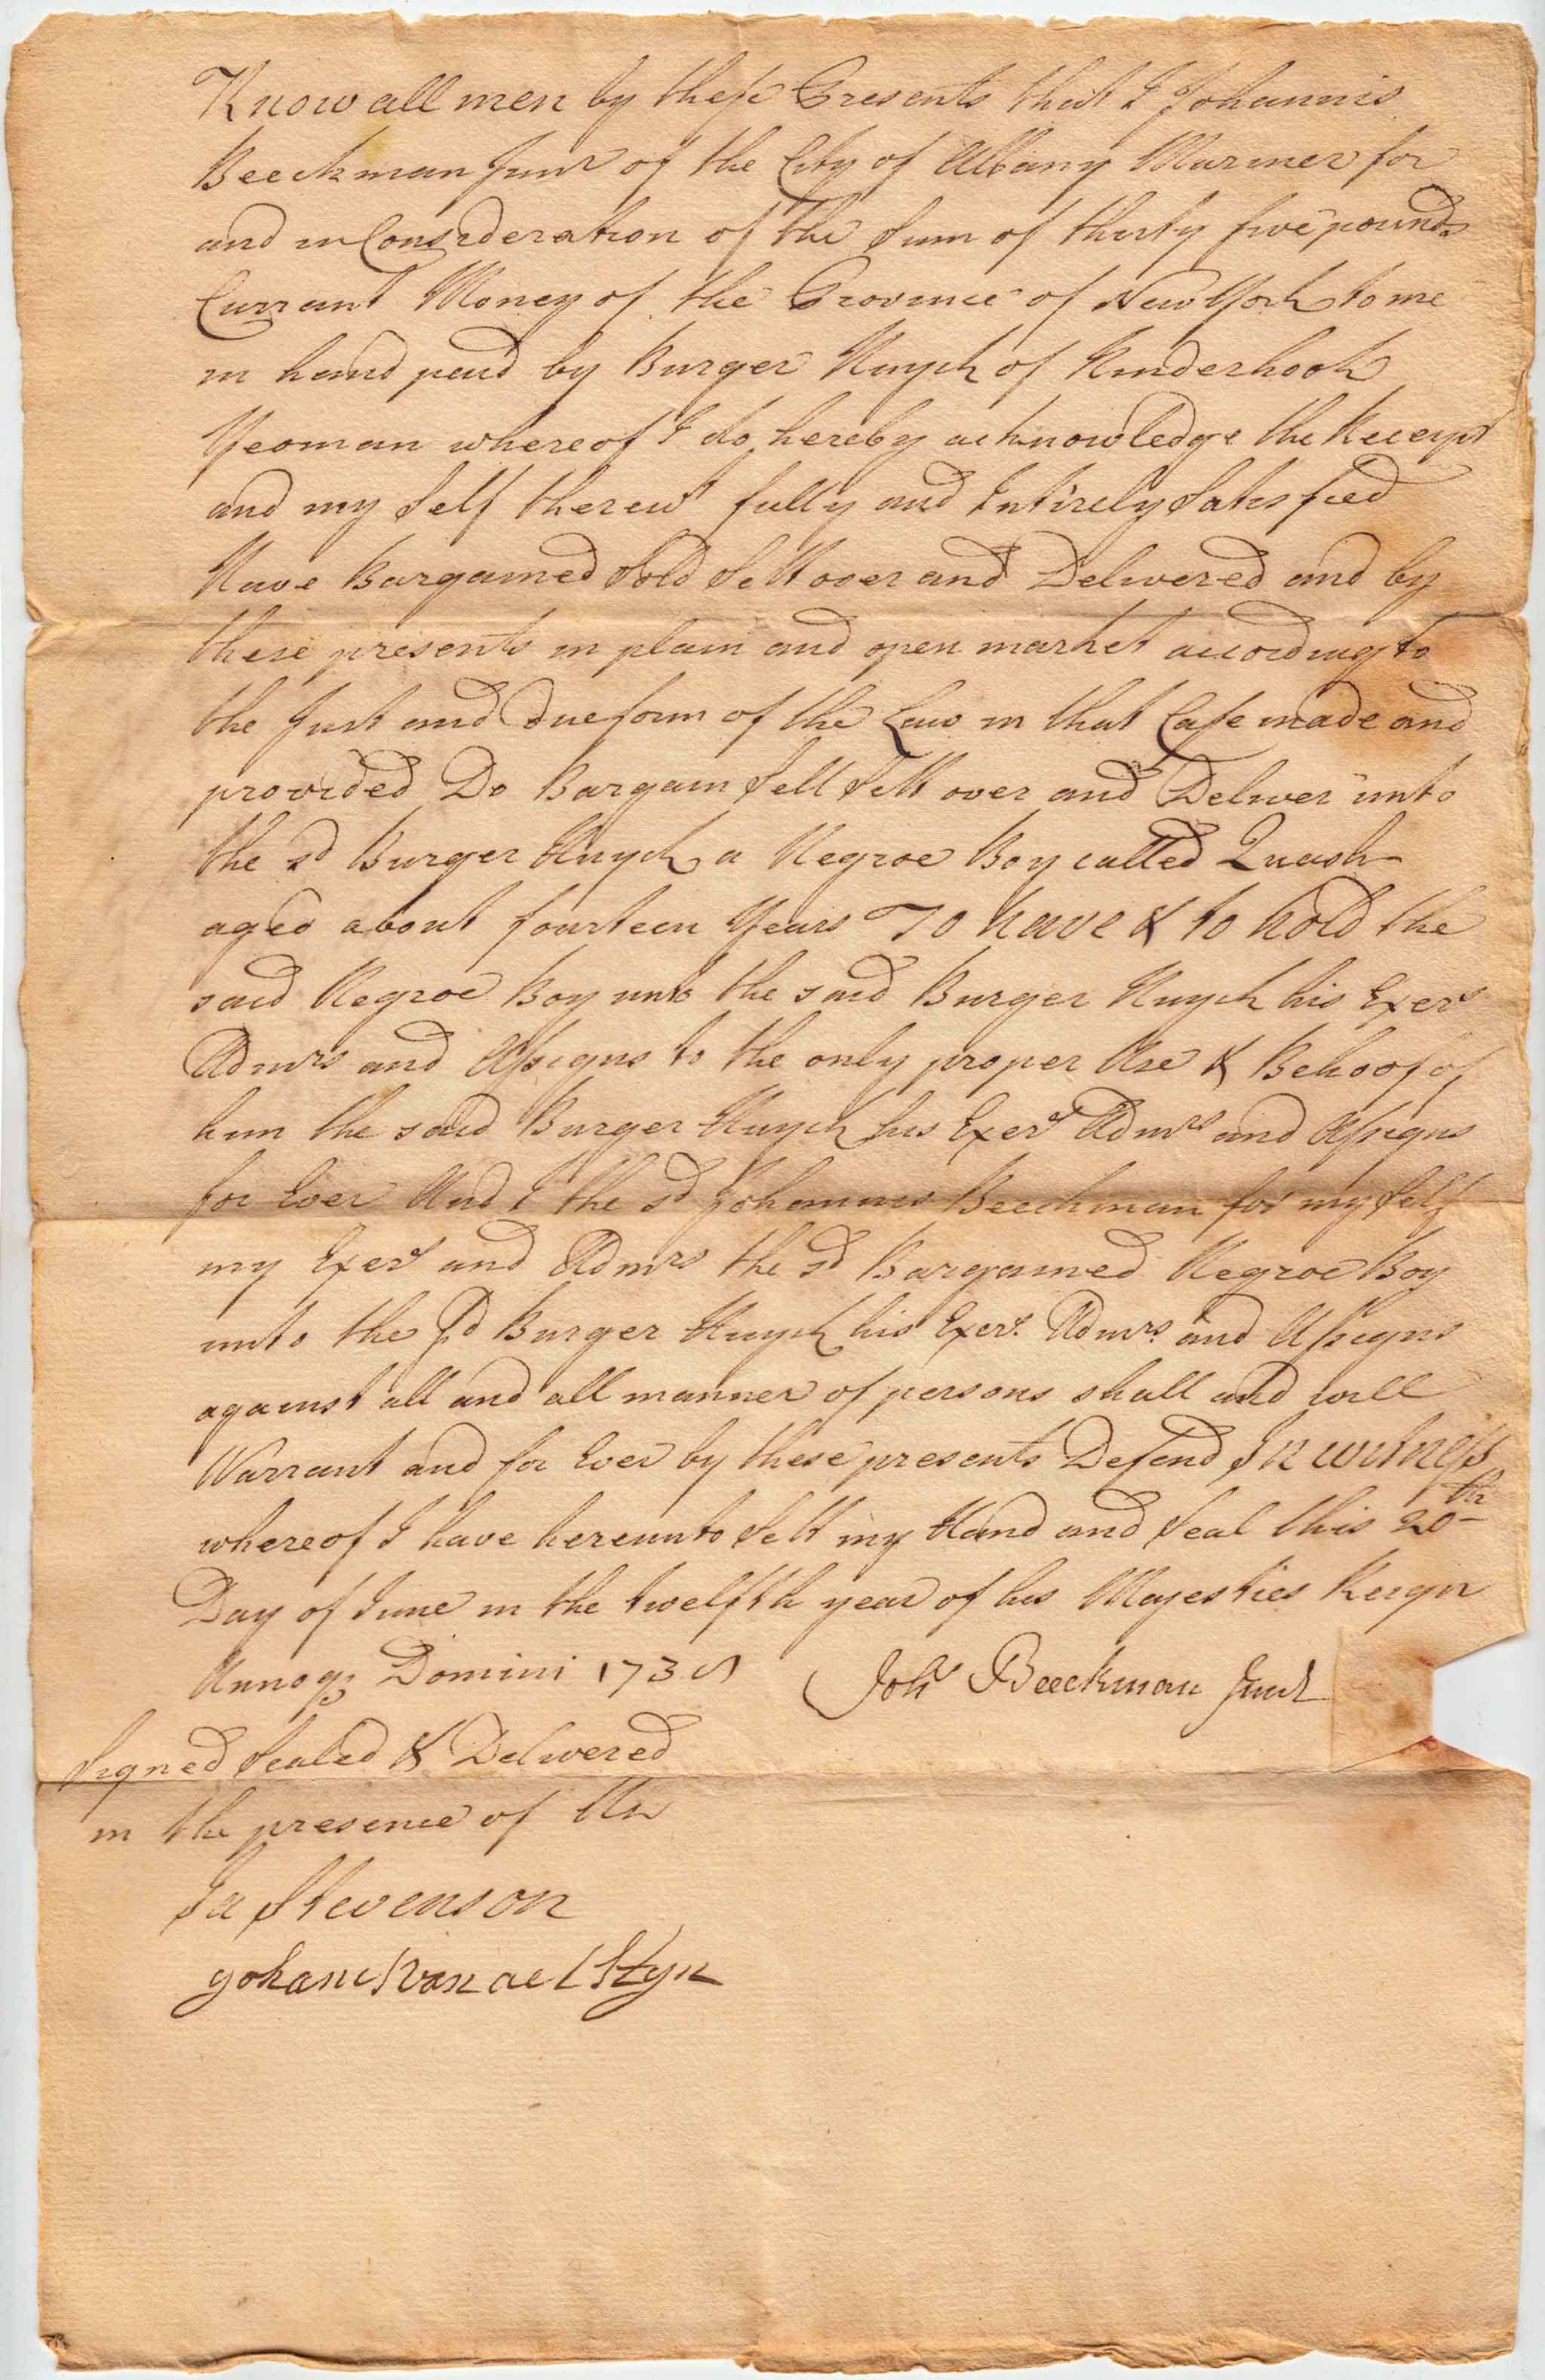 Know all men by these Presents that I Johannis
Beeckman Junr of the City of Albany Mariner for
and in Consideration of the Sum of thirty five pounds
Currant Money of the Province of New York to me
in hand paid by Burger Huych of Kinderhook
Yeoman whereof I do hereby acknowledge the Receipt
and my Self therewt fully and Intirely Satisfied
Have Bargained Sold Sett over and Delivered and by
these presents in plain and open market according to
the Just and Due form of the Law in that Case made and
provided Do Bargain Sell Sett over and Deliver unto
the sd Burger Huych a Negroe Boy called Quash
aged about fourteen Years To have & to hold the
said Negroe Boy unto the said Burger Huych his Exers
Admrs and Assigns to the only proper Use & Behoof of
him the said Burger Huych his Exers Admrs and Assigns
for Ever And I the sd Johannis Beeckman for my Self
my Exers and Admrs the sd Bargained Negroe Boy
unto the sd Burger Huych his Exers. Admrs. and Assigns
against all and all manner of persons shall and will
Warrant and for Ever by these presents Defend In witness
whereof I have hereunto Sett my Hand and Seal this 20th
Day of June in the twelfth year of his Majesties Reign
Annoq; Domini 1738
Johs Beeckman Junr
Signed Sealed & Delivered
in the presence of Us
Ja Stevenson
Johannis van aelstyn